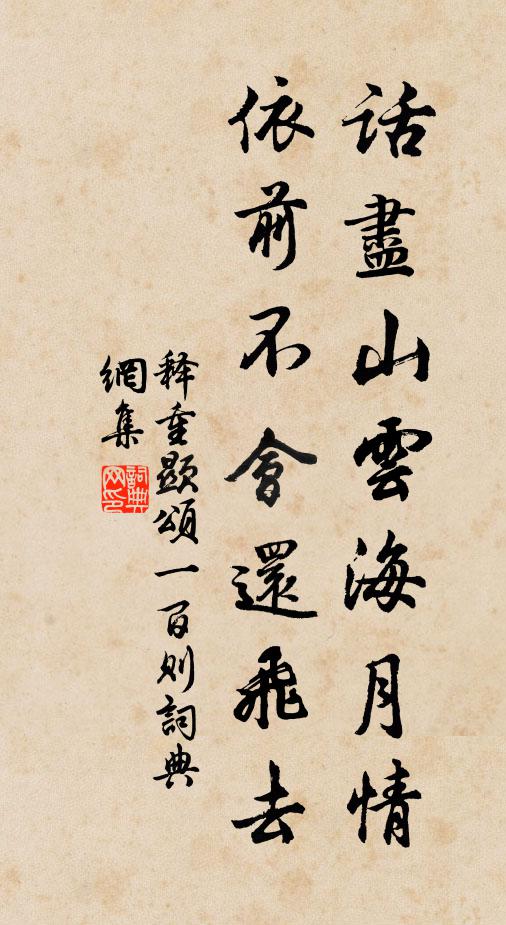 話盡山雲海月情
依前不會還飛去
释重顯頌一百则詞典
網集
詞典
网印